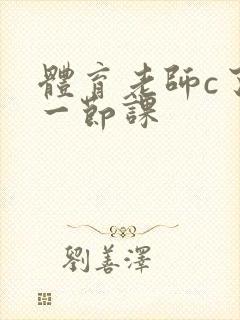 體育老師c了
一節課
劉善澤